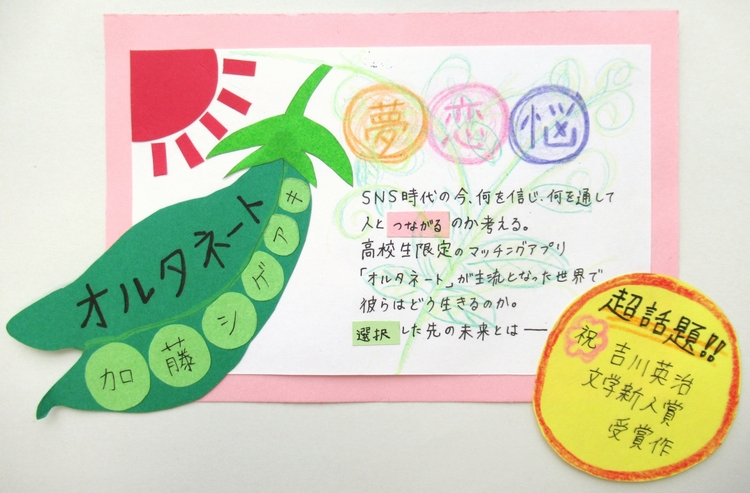 夢 恋 悩
オルタネート
加藤シゲアキ
SNS時代の今、何を信じ、何を通して
人とつながるのか考える。
高校生限定のマッチングアプリ
「オルタネート」が主流となった世界で
彼らはどう生きるのか。
選択した先の未来とは――
超話題!!
祝
吉川英治
文学新人賞
受賞作